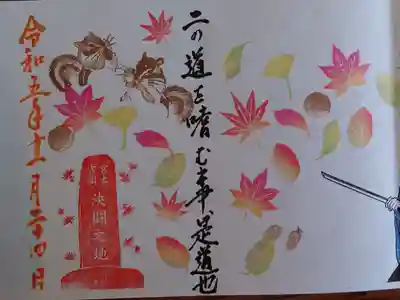 二の道を嗜む事、是道也
決闘之地
令和五年十一月二十四日